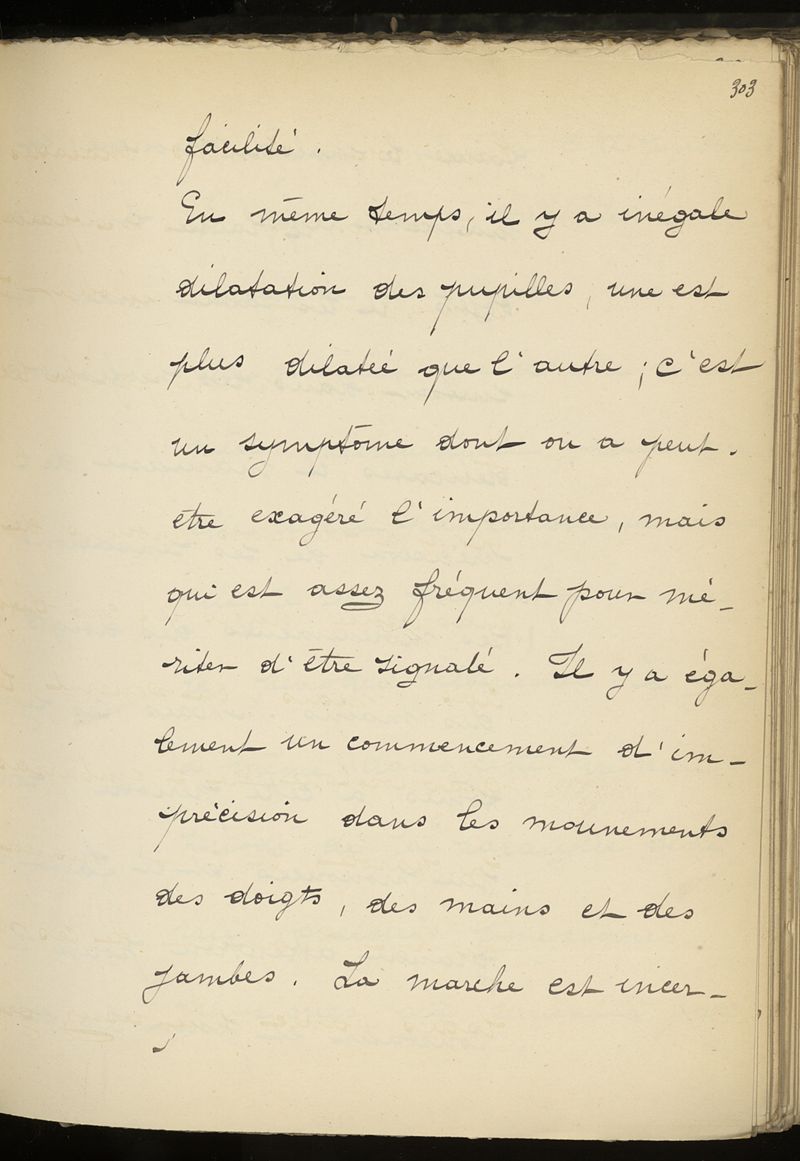 303
facilité.
En même temps, il y a inégale
dilatation des pupilles, une est
plus dilatéé que l'autre ; c'est
un symptôme dont on a peut-
etre exagéré l'importance, mais
qui est assez fréquent pour mé-
riter d'être signalé. Il y a éga-
lement un commencement d'im-
précision dans les mouvements
des doigts, des mains et des
jambes. La marche est incer-